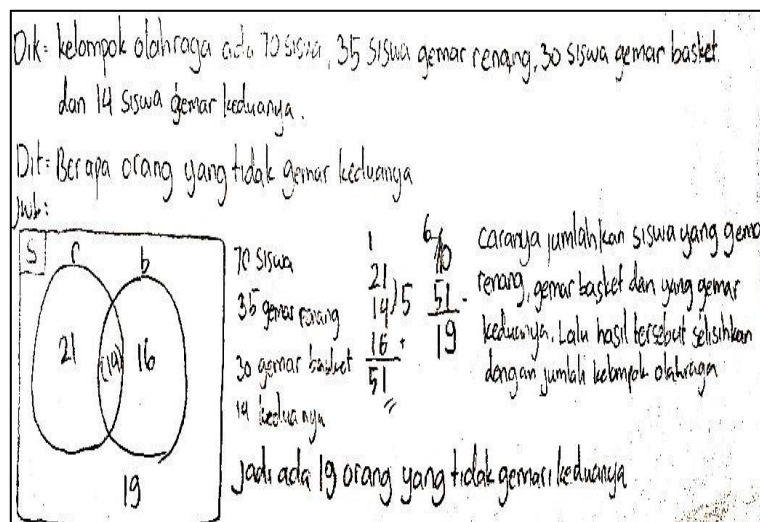 Dik = kelompok olahraga ada 70 siswa, 35 siswa gemar renang, 30 siswa gemar basket
dan 14 siswa gemar keduanya.
Dit = Berapa orang yang tidak gemar keduanya
Jwb:
S r b
21 (14) 16
19
70 siswa
35 gemar renang
30 gemar basket
14 keduanya
1
21
14) 5
16 +
51
6
70
51 -
19
caranya jumlahkan siswa yang gema
renang, gemar basket dan yang gemar
keduanya. Lalu hasil tersebut selisihkan
dengan jumlah kelompok olahraga
Jadi ada 19 orang yang tidak gemari keduanya